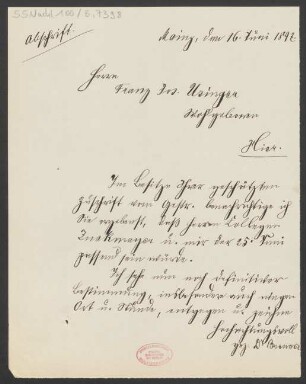 SS Nachl. 100 / B, 7398
Abschrift.
Mainz, den 16. Juni 1897.
Herrn
Franz Jos. Usinger
Wohlgeboren
Hier.
Im Besitze Ihrer geschätzten
Zuschrift vom Gestr. benachrichtige ich
Sie ergebenst, daß Herrn Collegen
u. mir der 25. Juni
passend sein würde.
Ich sehe nun noch definitiver
Bestimmung, insbesondere auch wegen
Ort u. Stunde, entgegen u. zeichne
Hochachtungsvoll
gez. Dr